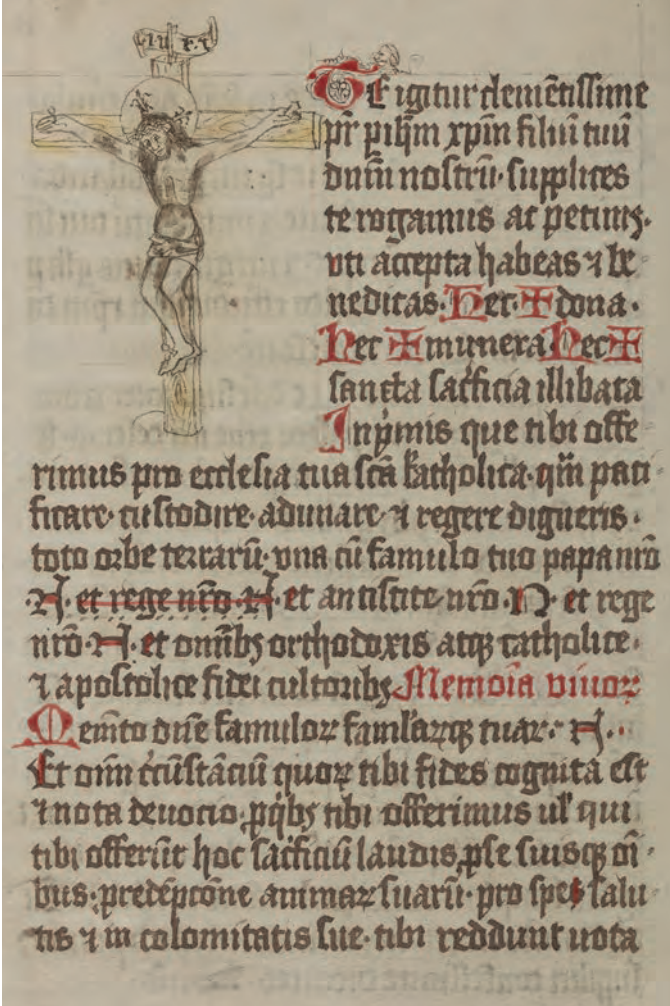 I N R I
Te igitur clemētissime
pr̄ p ih̄m xp̄m filiū tuū
dn̄m nostrū· supplices
te rogamus ac petim9·
vti accepta habeas ⁊ be
nedicas· Hec · ✠ dona ·
Hec ✠ munera Hec ✠
sancta sac̓ficia illibata
In p̓mis que tibi offe
rimus pro ecclesia tua sc̄a katholica· qm̄ paci
ficare· custodire· adunare· ⁊ regere digneris ·
toto orbe terrarū· vna cū famulo tuo papa nr̄o
·N· et rege nr̄o N· et antistite nr̄o· N · et rege
nr̄o· N· et omībꝫ orthodoxis atqꝫ catholice·
⁊ apostolice fidei cultoribꝫ Memoīa viuoꝝ
Memēto dn̄e famuloꝝ famlaꝝqꝫ tuaꝝ· N··
Et om̄ c̓cūstāciū quoꝝ tibi fides cognita est
⁊ nota deuocio, ꝓ q̓bꝫ tibi offerimus ul̓ qui
tibi offerūt hoc sac̓ficiū laudis, ꝓ se suisqꝫ oī
bus· ꝓ redēpcōne animaꝝ suarū· pro spei salu
tis ⁊ in colomitatis sue· tibi reddunt uota